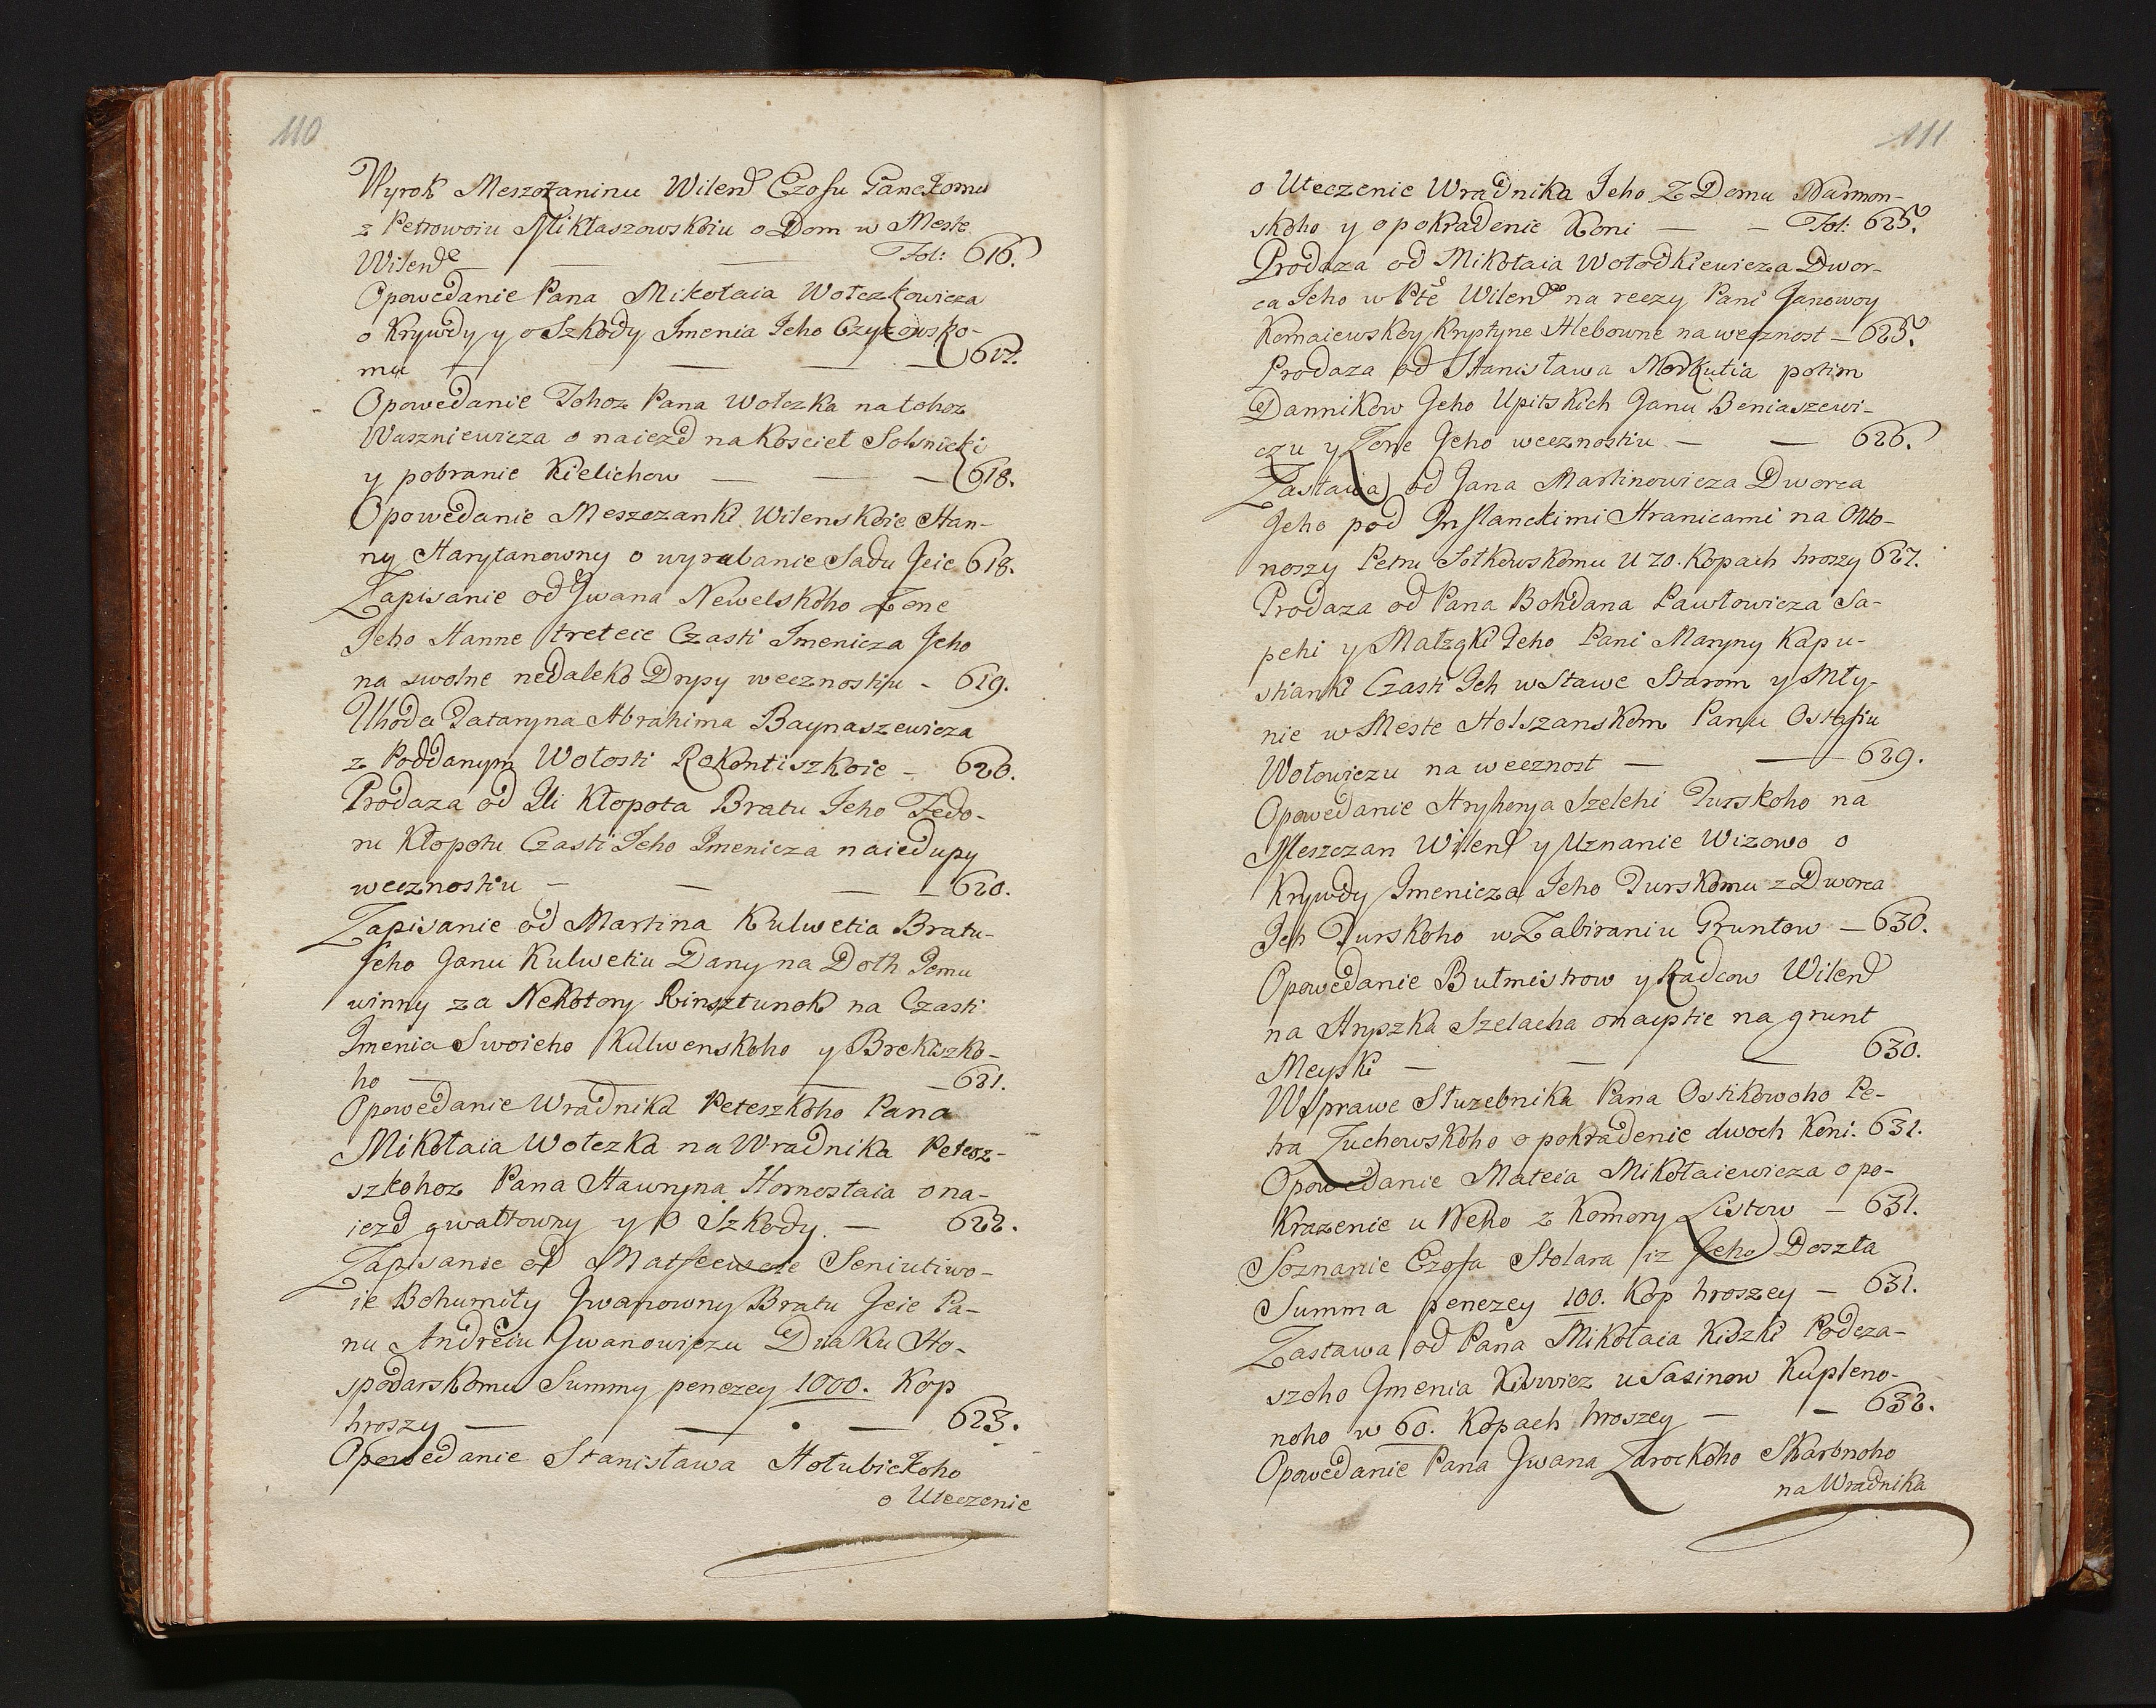 110
Wyrok Meszczaninu Wilend Czosu Ganckomu
z Petrowoiu Mikłaszowskoiu o Dom w Meste
Wilend — — Fol: 616.
Opowedanie Pana Mikołaia Wołczkowicza
o Krywdy y o Szkody Imenia Jeho Czyzowsko-
mu — — — — 617.
Opowedanie Tohoz Pana Wołczka na tohoz
Waszniewicza o naiezd na Koscieł Solsnicki
y pobranie Kielichow — — — 618.
Opowedanie Meszczanki Wilenskoie Han-
ny Harytanowny o wyrubanie Sadu Jeie 618.
Zapisanie od Jwana Newelskoho Zene
Jeho Hanne treteie Czasti Imenicza Jeho
na swolne nedaleko Drysy wecznostiu - 619.
Uhoda Tataryna Abrahima Baynaszewicza
z Poddanym Wołosti Rokontiszkoie - 620.
Prodaza od Ili Kłopota Bratu Jeho Fedo-
ru Kłopotu Czasti Jeho Imenicza naiedupy
wecznostiu — — — 620.
Zapisanie od Martina Kulwetia Bratu-
Jeho Janu Kulwetiu Dany na Doth Jemu
winny za Nekotory Rinsztunok na Czasti
Imenia Swoieho Kulwenskoho y Brekiszko-
ho — — — — 621.
Opowedanie Wradnika Peteszkoho Pana
Mikołaia Wołczka na Wradnika Petesz-
szkohoz Pana Hawryna Hornostaia o na-
iezd gwałtowny y o Szkody. — 622.
Zapisanie od Matfeewoie Seniutiwo-
ie Bohumiły Jwanowny Bratu Jeie Pa-
nu Andreiu Jwanowiczu Diaku Ho-
spodarskomu Summy penezey 1000. Kop
hroszy — — — 623.
Opowedanie Stanisława Hołubickoho
o Uteczenie
111
o Uteczenie Wradnika Jeho Z Domu Narmon-
skoho y o pokradenie Koni — — Fol: 625.
Prodaza od Mikołaia Wołodkiewicza Dwor-
ca Jeho w Pte Wilend na reczy Pani Janowoy
Komaiewskey Krystyne Hlebowne na wecznost — 625.
Prodaza od Stanisława Morkutia potim
Dannikow Jeho Upitskich Janu Beniaszewi-
czu y Zone Jeho wecznostiu — — 626.
Zastawa od Jana Martinowicza Dworca
Jeho pod Inflanckimi Hranicami na Okto-
noszy Petru Sotkowskomu U 20. Kopach hroszy 627.
Prodaza od Pana Bohdana Pawłowicza Sa-
pehi y Małząki Jeho Pani Maryny Kapu-
stianki Czasti Jeh w Stawe Starom y Mły-
nie w Meste Holszanskom Panu Ostafiu
Wołowiczu na wecznost — — 629.
Opowedanie Hryhorya Szelehi Turskoho na
Meszczan Wilend y Uznanie Wizowo o
Krywdy Imenicza Jeho Turskomu z Dworca
Jeh Turskoho w Zabiraniu Gruntow — 630.
Opowedanie Butmistrow y Radcow Wilend
na Hryszka Szelacha o nayscie na grunt
Meyski — — — 630.
W Sprawe Służebnika Pana Ostikowoho Pe-
tra Zuchowskoho o pokradenie dwoch Koni. 631.
Opowedanie Mateia Mikołaiewicza o po-
Krazenie u Neho z Komory Listow — 631.
Soznanie Czosa Stolara iz Jeho Doszła
Summa penezey 100. Kop hroszey — 631.
Zastawa od Pana Mikołaia Kiszki Podcza-
szoho Imenia Kiswicz u Sasinow Kupleno-
noho w 60. Kopach hroszey — — 632.
Opowedanie Pana Jwana Zarockoho Skarbnoho
na Wradnika